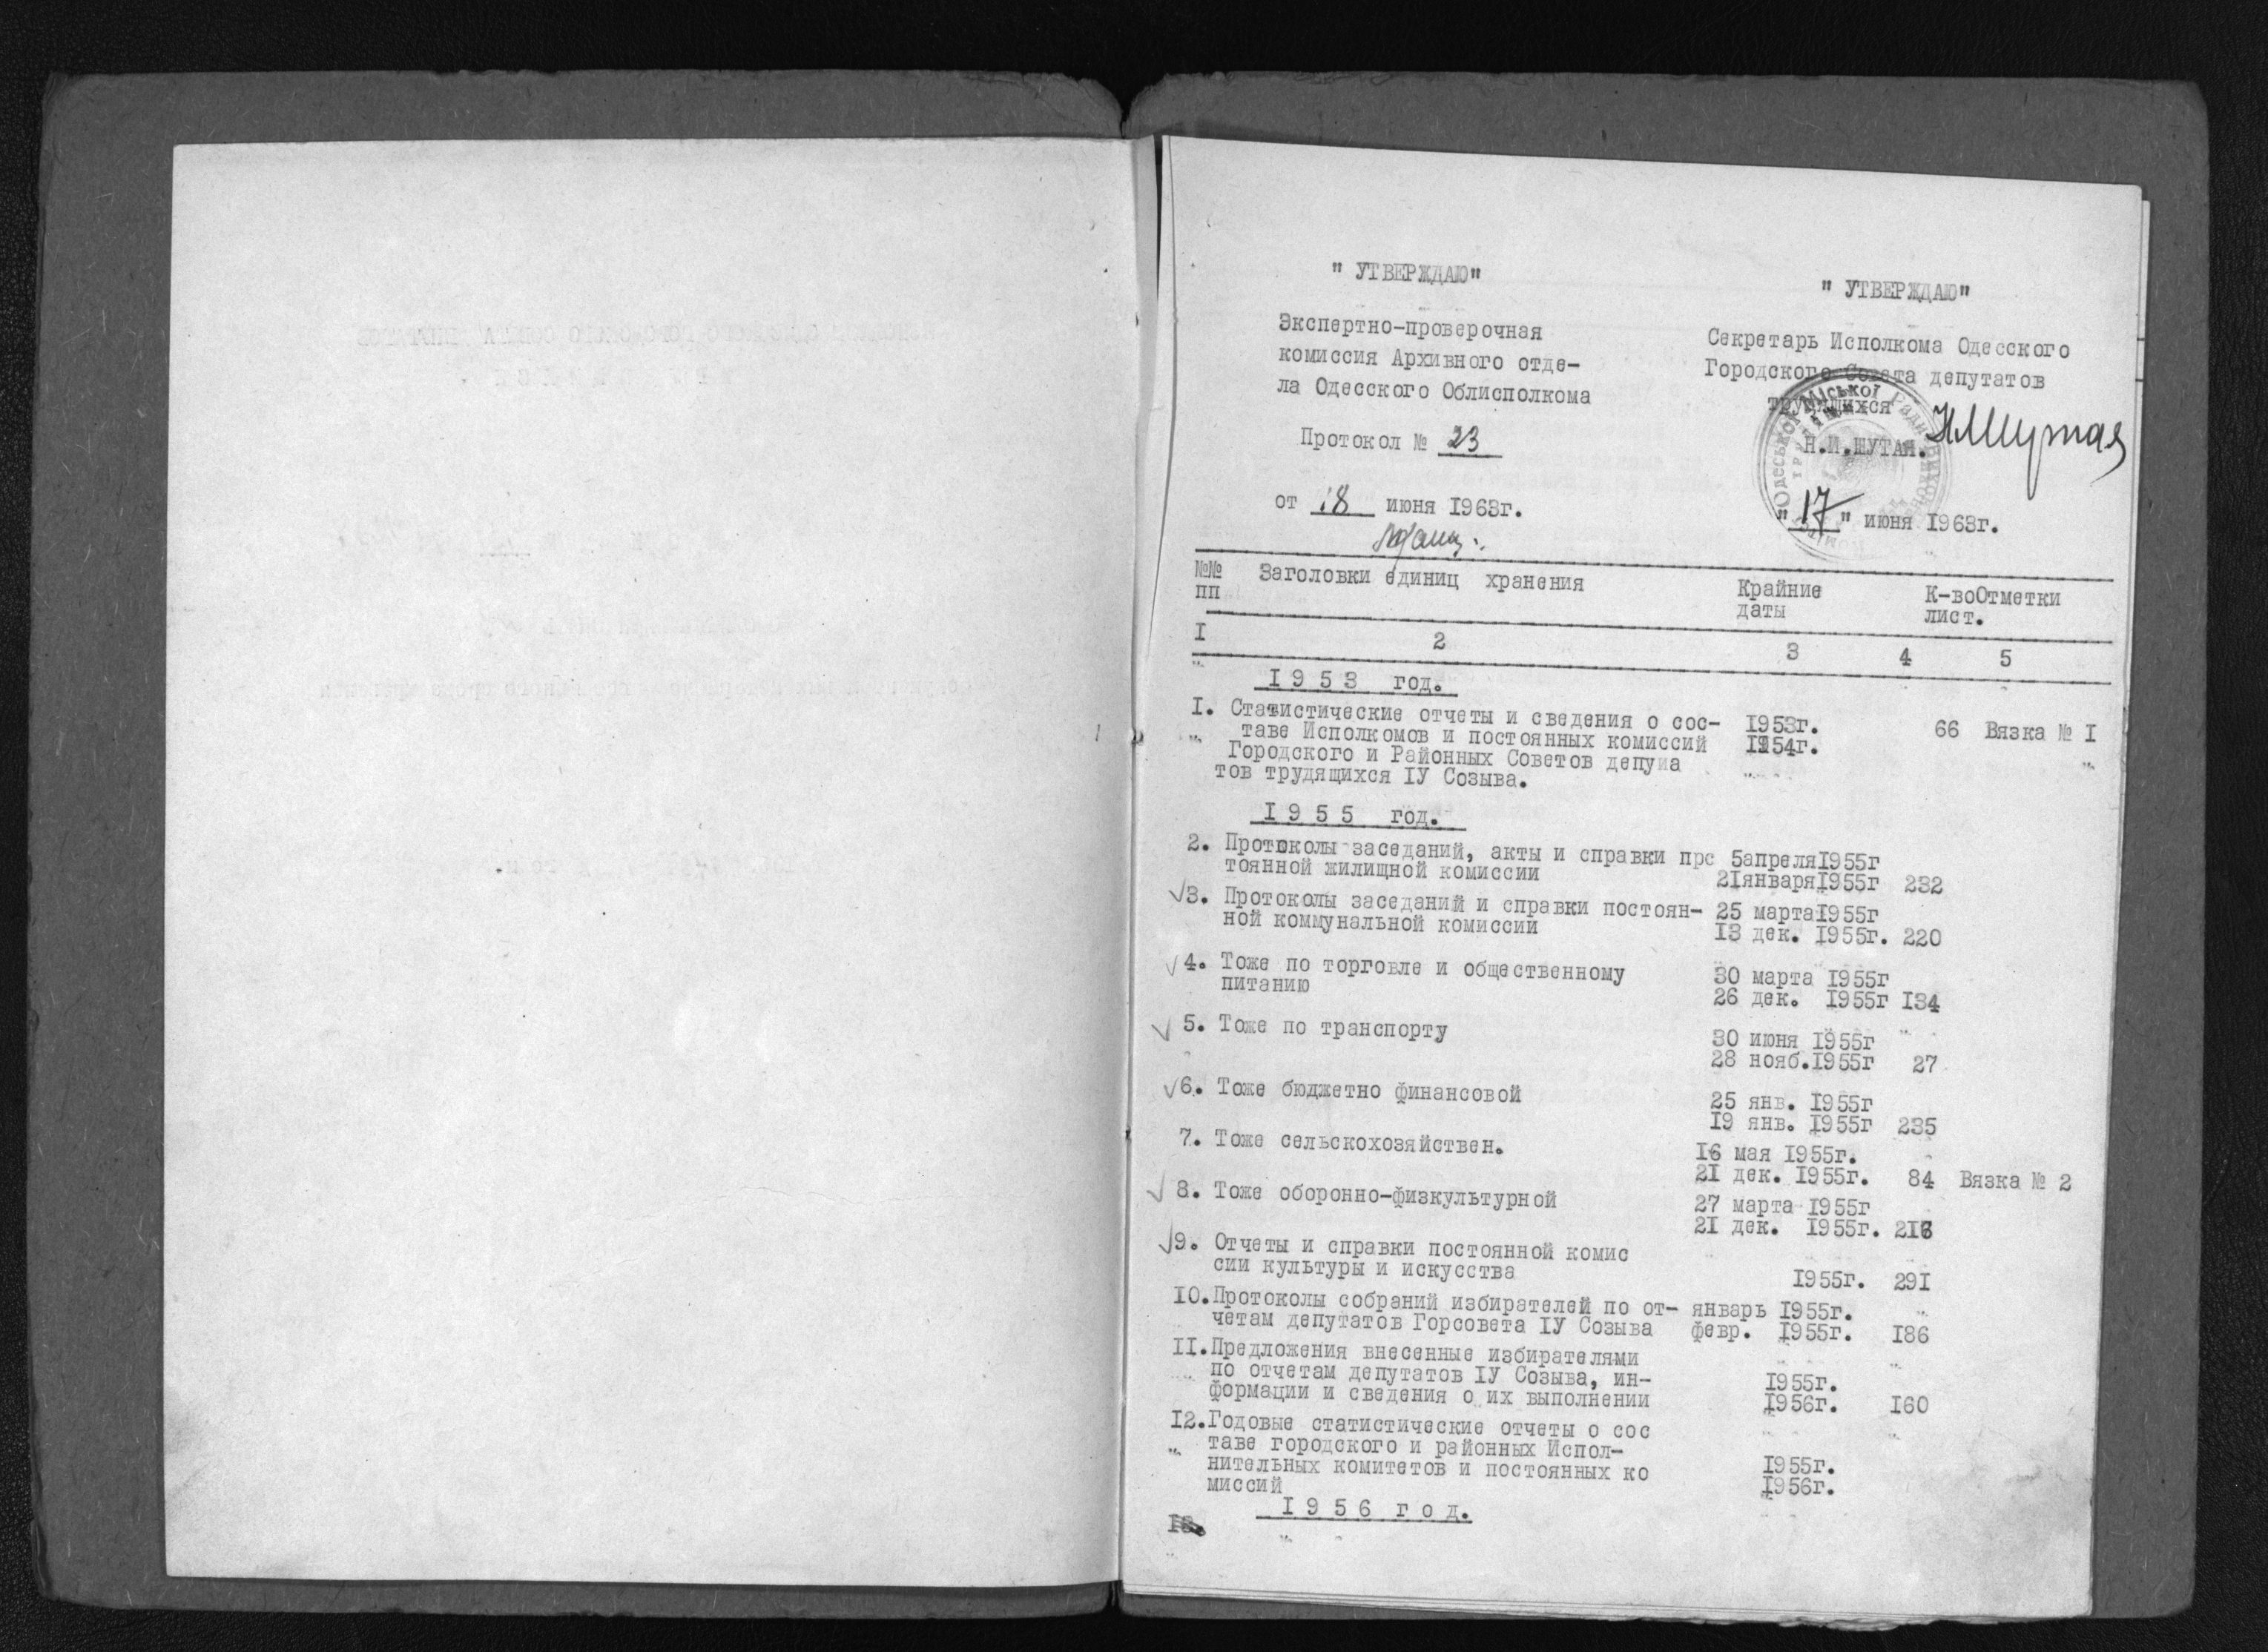 " УТВЕРЖДАЮ"
Экспертно-проверочная
комиссия Архивного отде-
ла Одесского Облисполкома
Протокол № 23
от 18 июня 1963г.
" УТВЕРЖДАЮ"
Секретарь Исполкома Одесского
Городского Совета депутатов
трудящихся
Н.И.ШУТАЯ.
"17" июня 1963г.
№№ Заголовки единиц хранения Крайние К-воОтметки
пп даты лист.
I 2 3 4 5
I 9 5 3 год.
I. Статистические отчеты и сведения о сос- I953г. 66 Вязка № I
таве Исполкомов и постоянных комиссий I954г.
Городского и Районных Советов депуиа
тов трудящихся IУ Созыва.
I 9 5 5 год.
2. Протоколы заседаний, акты и справки прс 5апреляI955г
тоянной жилищной комиссии 2IянваряI955г 232
3. Протоколы заседаний и справки постоян- 25 мартаI955г
ной коммунальной комиссии I3 дек. I955г. 220
4. Тоже по торговле и общественному 30 марта I955г
питанию 26 дек. I955г I34
5. Тоже по транспорту 30 июня I955г
28 нояб.I955г 27
6. Тоже бюджетно финансовой 25 янв. I955г
I9 янв. I955г 235
7. Тоже сельскохозяйствен. I6 мая I955г.
2I дек. I955г. 84 Вязка № 2
8. Тоже оборонно-физкультурной 27 марта I955г
2I дек. I955г. 2I6
9. Отчеты и справки постоянной комис
сии культуры и искусства I955г. 29I
I0.Протоколы собраний избирателей по от- январь I955г.
четам депутатов Горсовета IУ Созыва февр. I955г. I86
II.Предложения внесенные избирателями
по отчетам депутатов IУ Созыва, ин- I955г.
формации и сведения о их выполнении I956г. I60
I2.Годовые статистические отчеты о сос
таве городского и районных Испол-
нительных комитетов и постоянных ко I955г.
миссий I956г.
I 9 5 6 г о д.